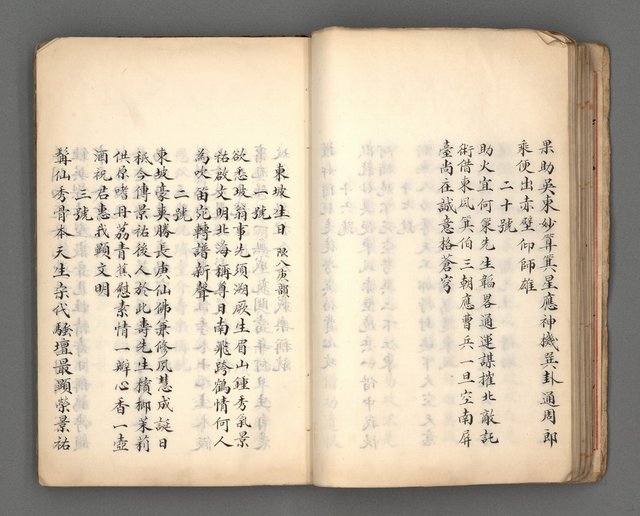 果助吳東妙算箕星應神機巽卦通周郎
乘便出赤壁仰師雄
二十號
助火宜何策先生韜略通運謀摧北敵託
術借東風箕伯三朝應曹兵一旦空南屏
臺尚在誠意格蒼穹
東坡生日 限八庚韻
一號
欲悉坡翁事先須溯厥生眉山鍾秀氣景
祐啟文明北海稱尊日南飛跨鶴情何人
為吹笛宛轉譜新聲
二號
東坡豪興勝長庚仙佛兼修夙慧成誕日
祇合傳景祐後人於此壽先生檳榔茉莉
供原嗜丹荔青蕉慰素情一瓣心香一壺
酒祝君惠我顯文明
三號
髯仙秀骨本天生宋代騷壇最顯榮景祐